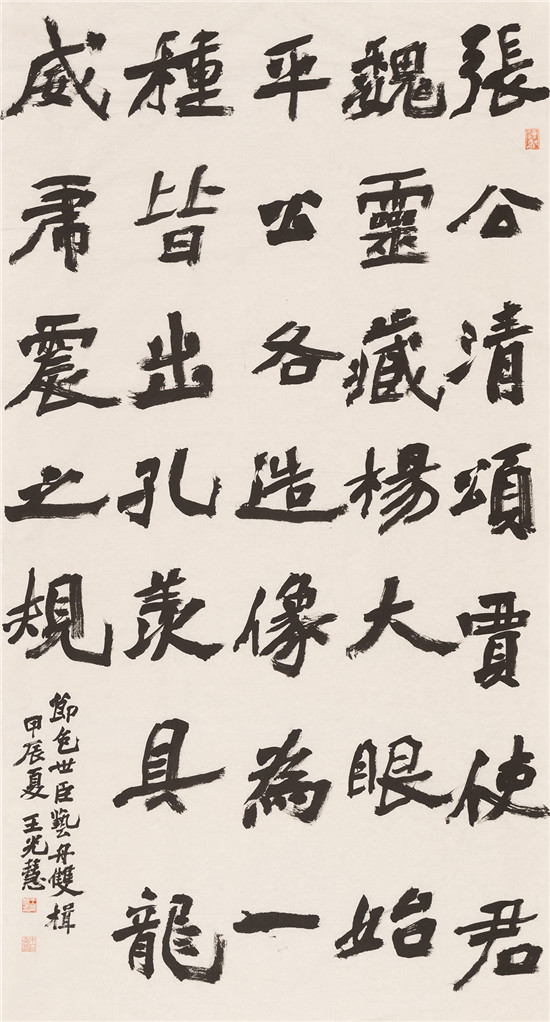 張公清頌賈使君
魏靈藏楊大眼始
平公各造像為一
種皆出孔羨具龍
威虎震之規
節包世臣藝舟雙楫
甲辰夏 王光慧